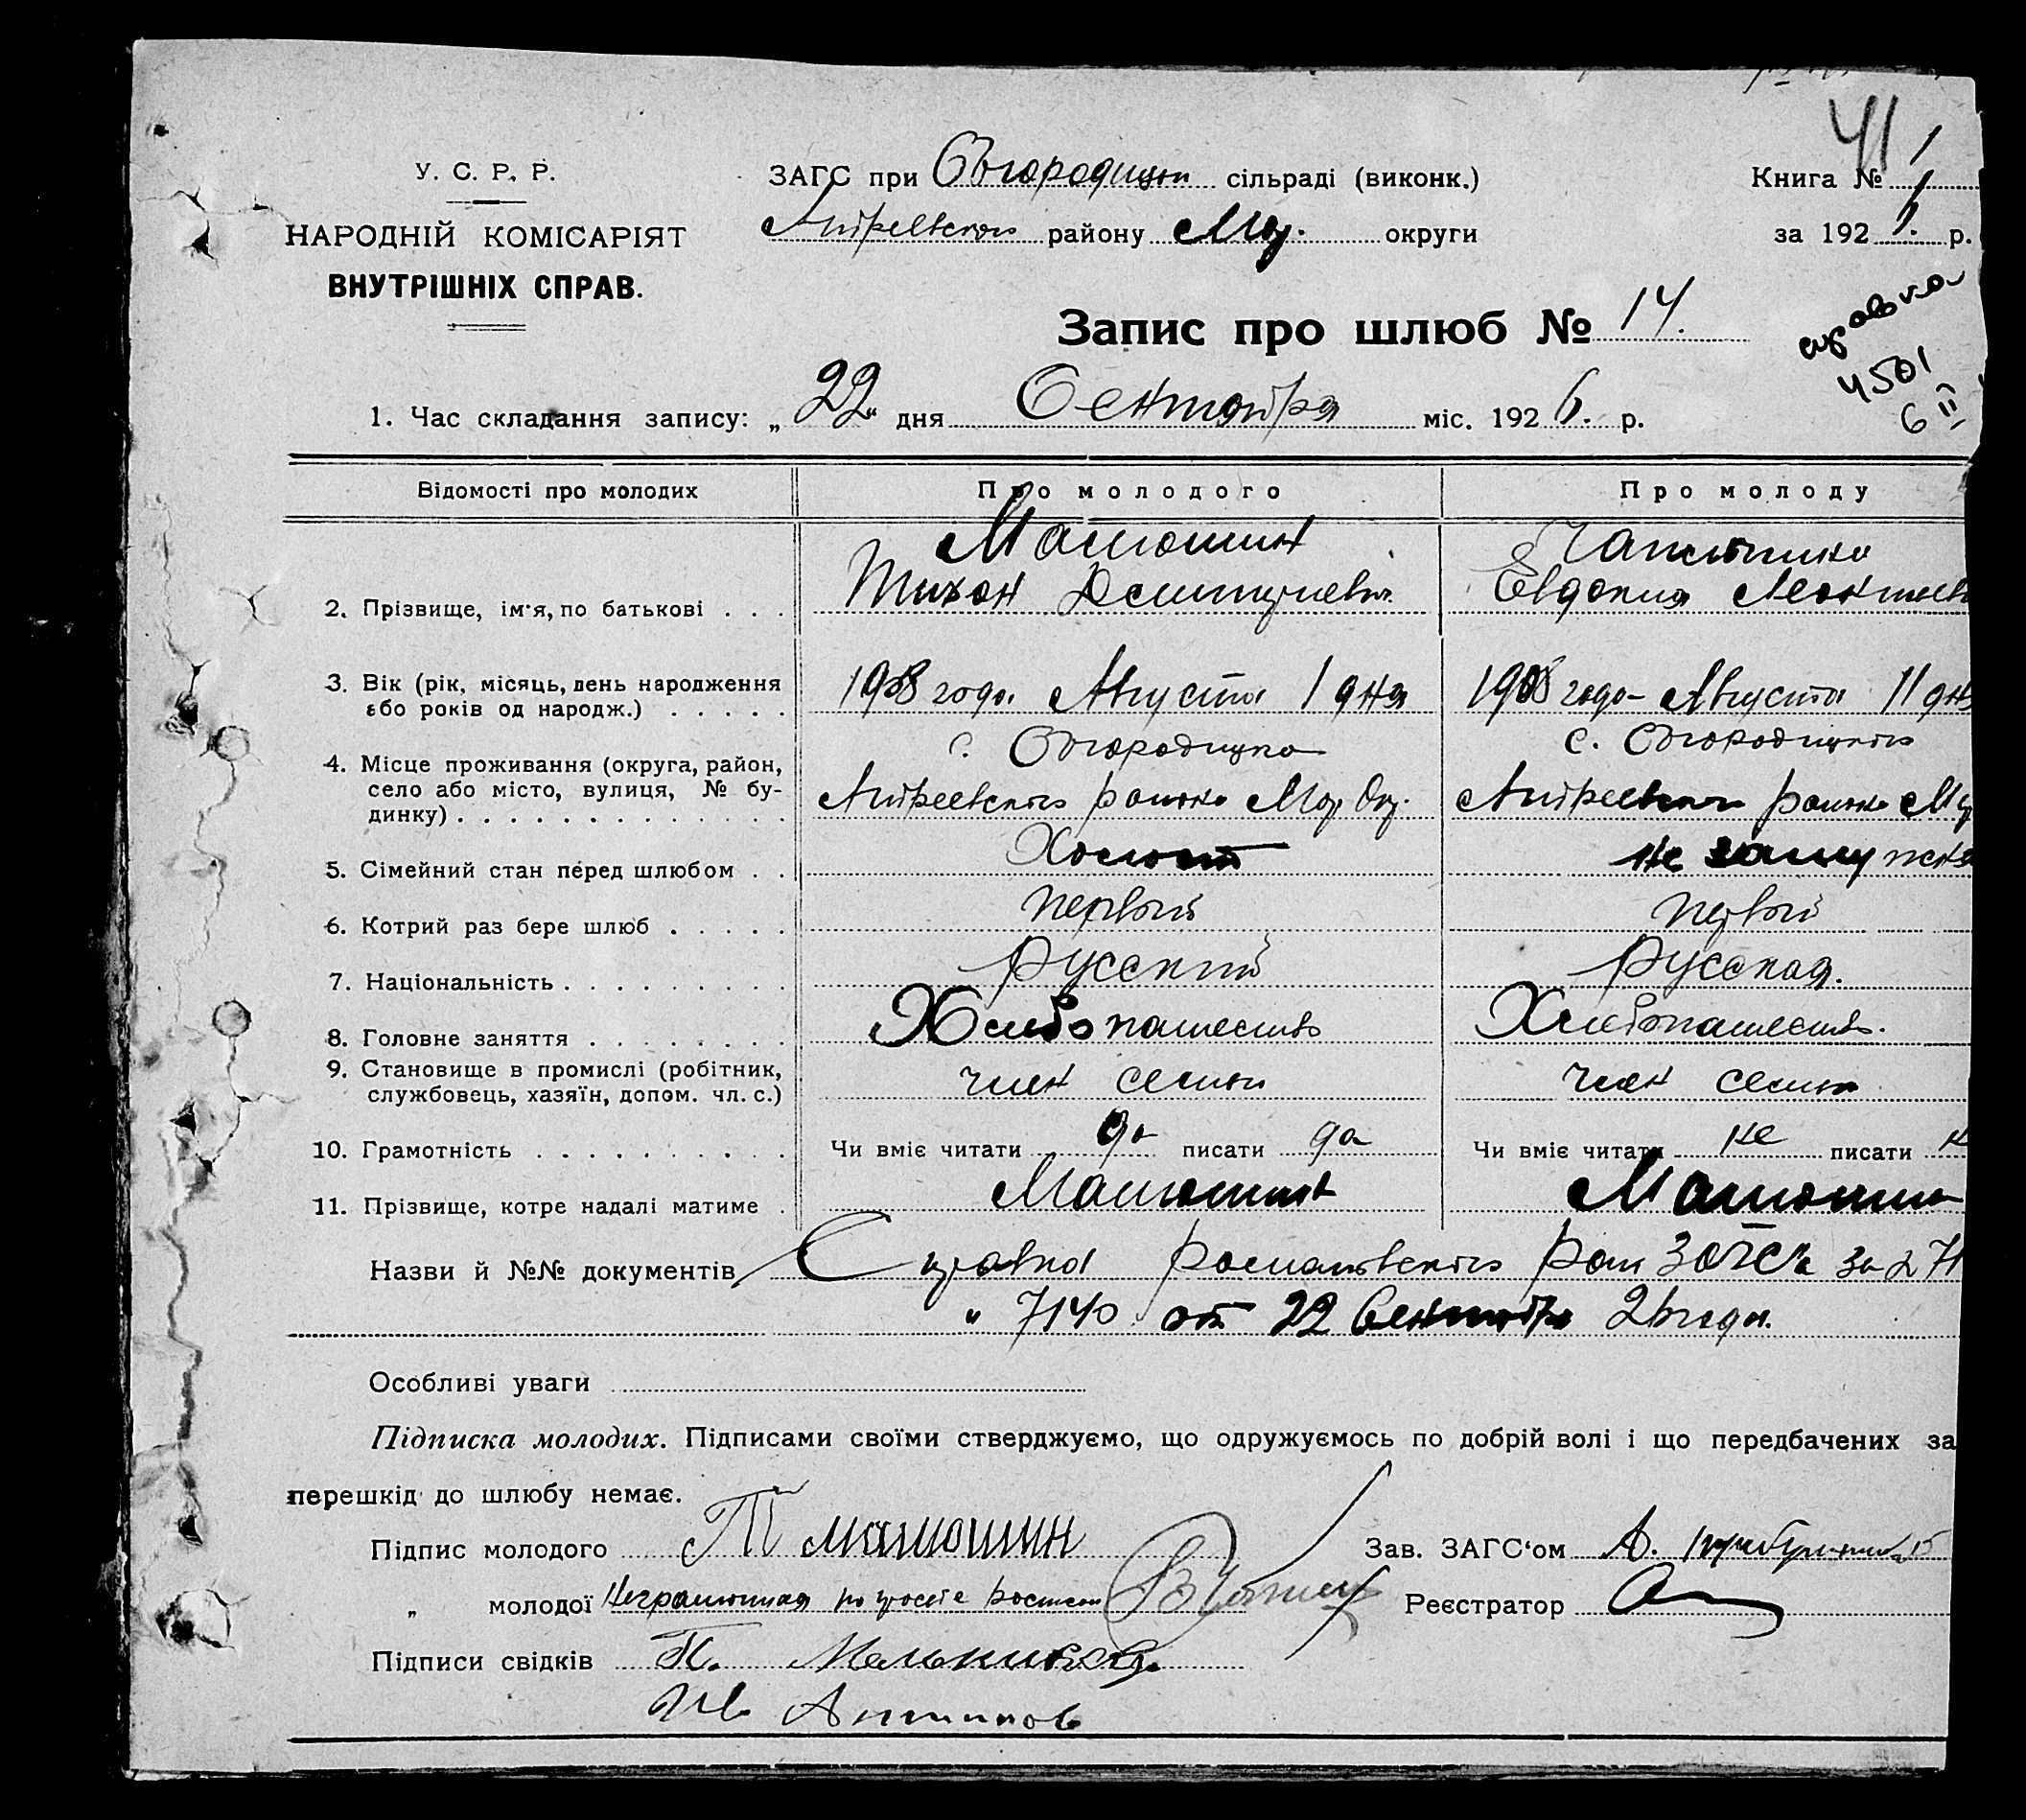 41
У. С. Р. Р.
НАРОДНІЙ КОМІСАРІЯТ
ВНУТРІШНІХ СПРАВ.
ЗАГС при сільраді (виконк.)
району округи
Книга № 1
за 1926. р.
справка
4501
6 II
Запис про шлюб № 14.
1. Час складання запису: „22“ дня Сентября міс. 1926. р.
Відомості про молодих Про молодого Про молоду
Матюшин
2. Прізвище, ім'я, по батькові . . . Тихон Евдокия
3. Вік (рік, місяць, день народження
або років од народж.) . . . . . 1908 года Августа 1 дня 1908 года Августа 11 дня
с. с.
4. Місце проживання (округа, район,
село або місто, вулиця, № бу-
динку) . . . . . . . . . . . . . Андреевского района Андреевского района
5. Сімейний стан перед шлюбом . . Холост не замужня
6. Котрий раз бере шлюб . . . . . первый первый
7. Національність . . . . . . . . . Русский Русская.
8. Головне заняття . . . . . . . . Хлебопашество Хлебопашество.
9. Становище в промислі (робітник,
службовець, хазяїн, допом. чл. с.) член семьи член семьи
10. Грамотність . . . . . . . . . . Чи вміє читати да писати да Чи вміє читати не писати н
11. Прізвище, котре надалі матиме . Матюшин Матюшин
Назви й №№ документів Справка за № 71
" 7140 от 22 Сентября 26 года.
Особливі уваги
Підписка молодих. Підписами своїми стверджуємо, що одружуємось по добрій волі і що передбачених за
перешкід до шлюбу немає.
Підпис молодого Т Матюшин Зав. ЗАГС‘ом А.
„ молодої Неграмотная по просьбе Реєстратор
Підписи свідків Мельников
Ив Антипов